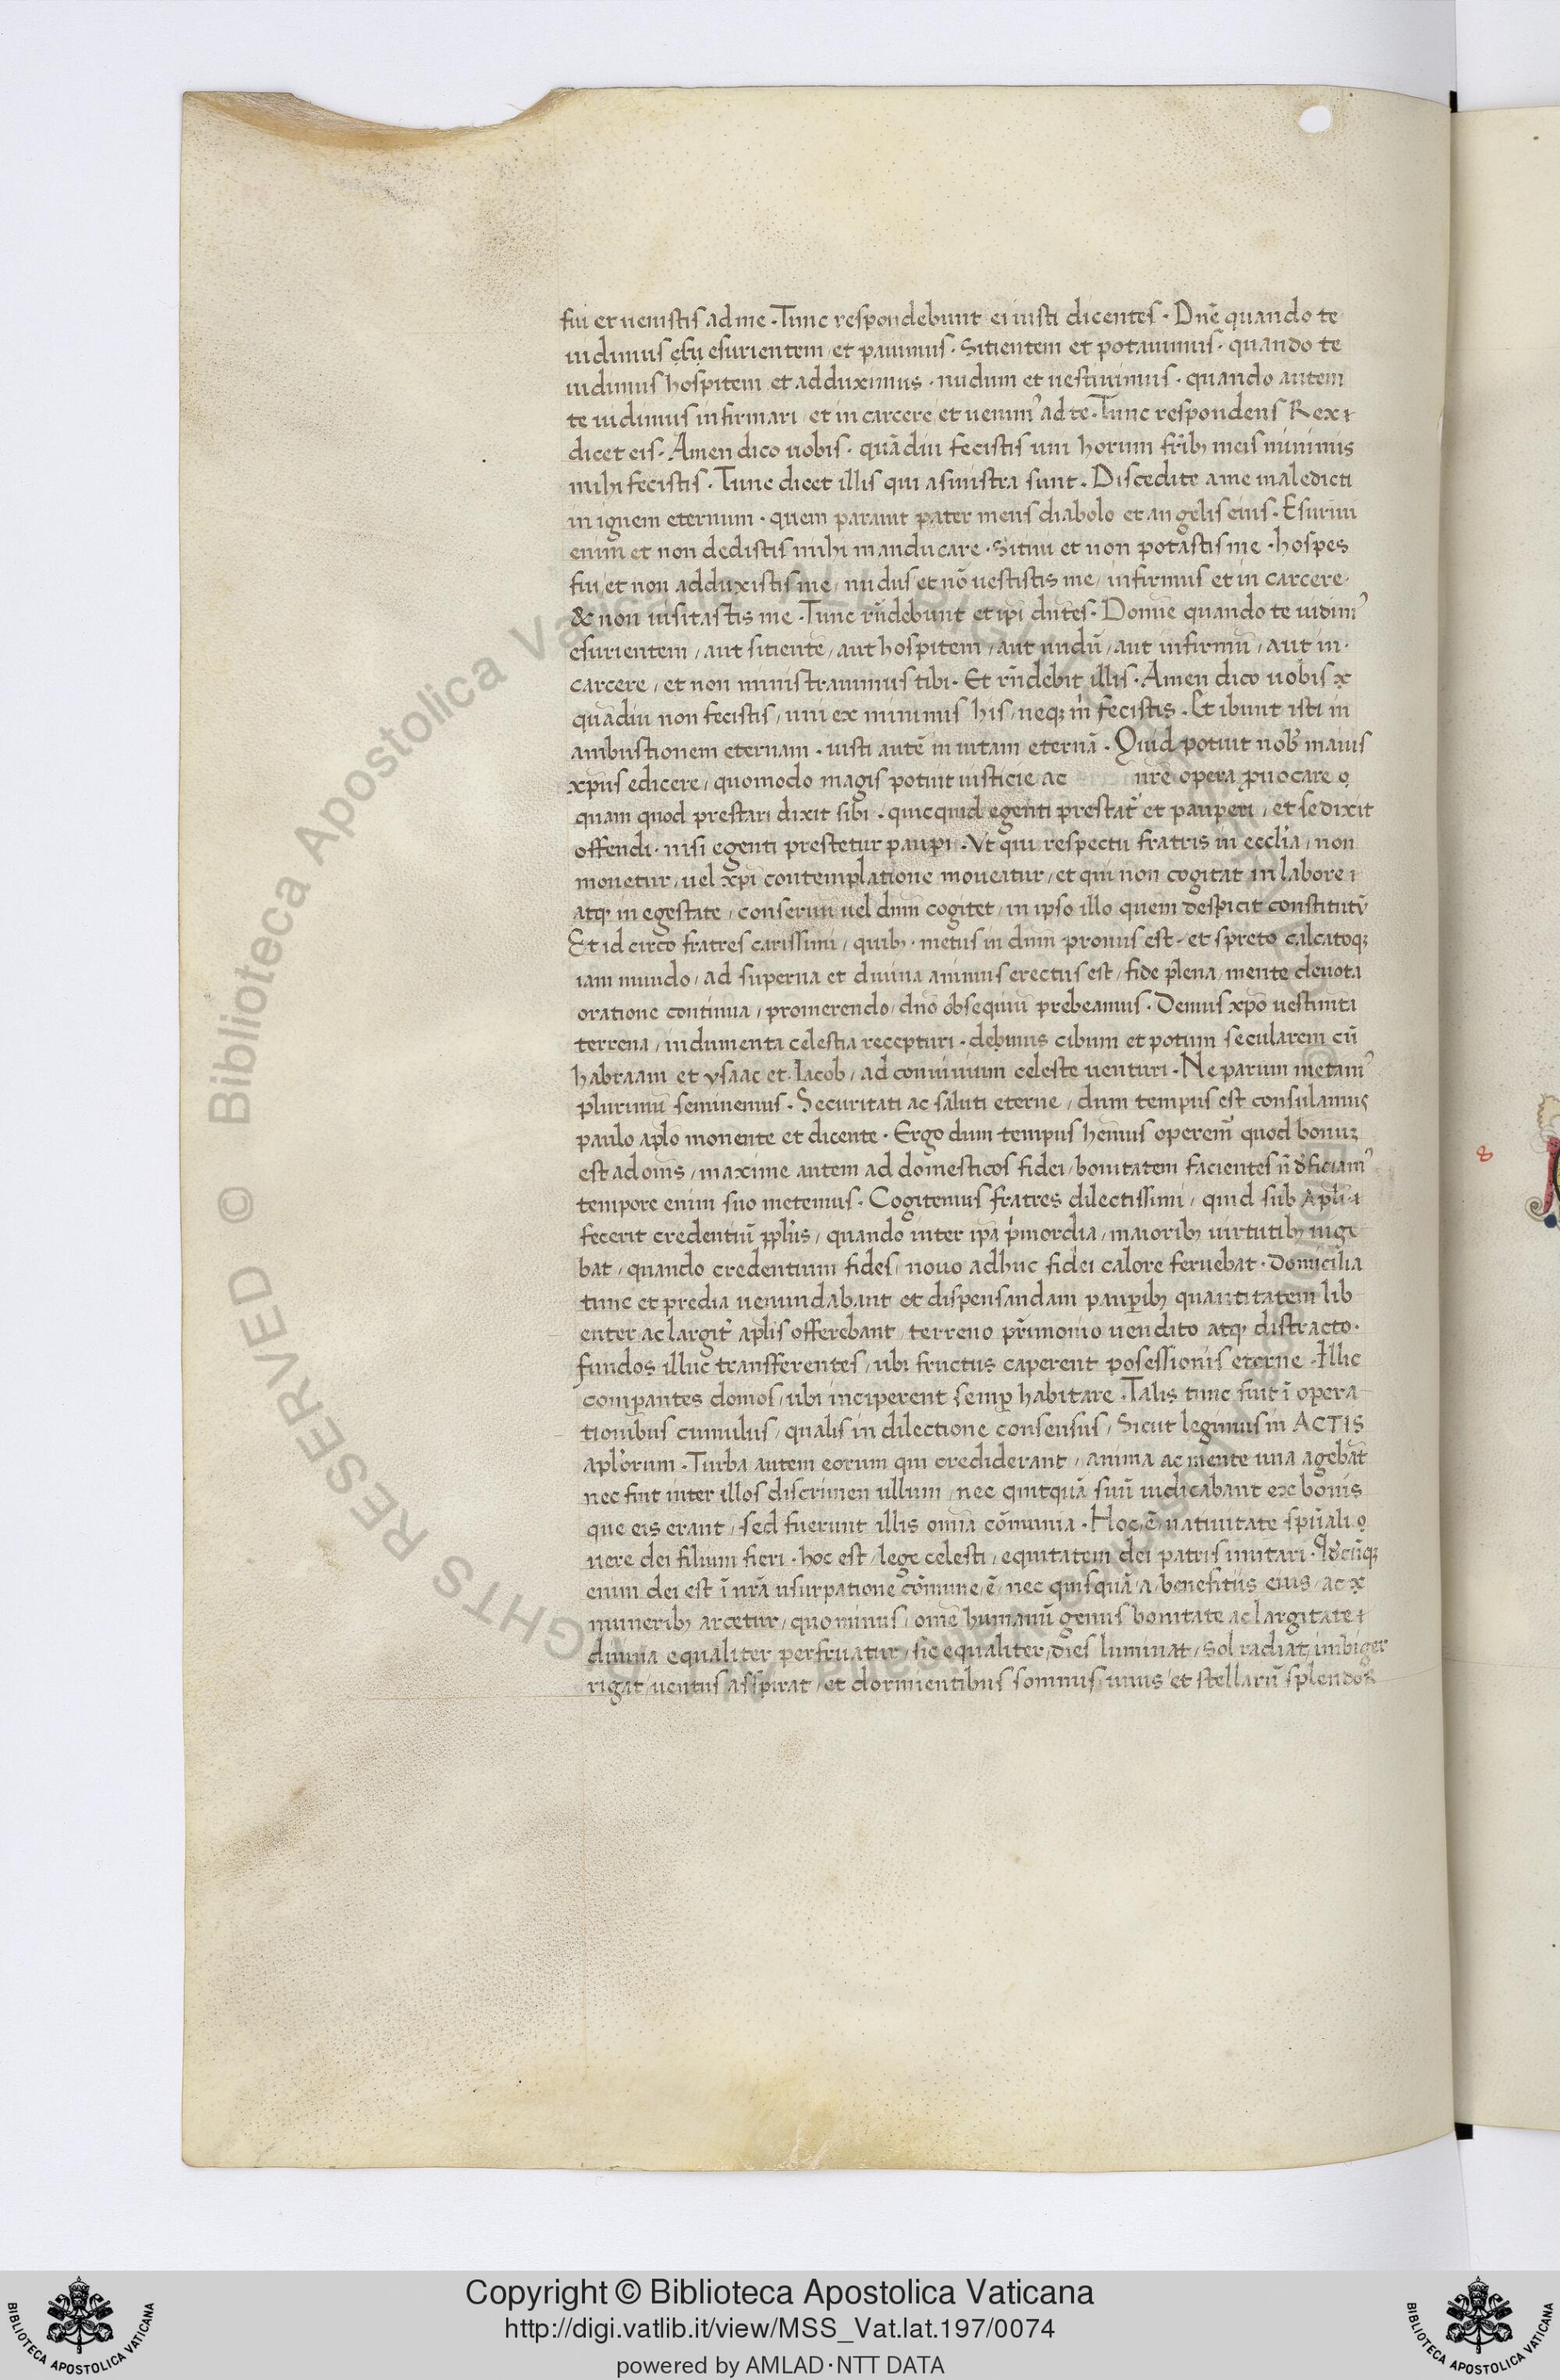 fui et uenistis ad me . Tunc respondebunt ei iusti dicentes . Dnẽ quando te
uidimus esurientem et pauimus . Sitientem et potauimus . quando te
uidimus hospitem et adduximus . nudum et uestiuimus . quando autem
te uidimus infirmari / et in carcere / et uenim᾽ ad te . Tunc respondens Rex
dicet eis . Amen dico uobis . quãdiu fecistis uni horum frĩbꝫ meis minimis
mihi fecistis . Tunc dicet illis qui a sinistra sunt . Discedite a me maledicti
in ignem eternum . quem parauit pater meus diabolo et angelis eius . Esuriui
enim et non dedistis mihi manducare . sitiui et non potastis me . hospes
fui / et non adduxistis me / nudus et nõ uestistis me / infirmus et in carcere .
& non uisitastis me . Tunc rñdebunt et ipi dntes . Domine quando te uidim᾽
esurientem / aut sitientẽ / aut hospitem / aut nudũ / aut infirmũ / aut in .
carcere / et non ministrauimus tibi . Et rñdebit illis . Amen dico uobis
quãdiu non fecistis / uni ex minimis his / neqꝫ m fecistis . Et ibunt isti in
ambustionem eternam . iusti autẽ in uitam eternã . Quid potuit nob maius
xp̃us edicere / quomodo magis potuit iusticie ac nrẽ opera ꝓuocare
quam quod prestari dixit sibi . quicquid egenti prestat et pauperi / et se dixit
offendi . nisi egenti prestetur pauꝑi . Vt qui respectu fratris in ecclia / non
mouetur / uel xp̃i contemplatione moueatur / et qui non cogitat in labore
atqꝫ in egestate / conseruũ uel dnm cogitet / in ipso illo quem despicit constitutũ
Et id circo fratres carissimi / quibꝫ . metus in dnm pronus est . et spreto calcatoqꝫ
iam mundo / ad superna et diuina animus erectus est / fide plena / mente deuota
oratione continua / promerendo / dnõ obsequiũ prebeamus . Demus xp̃o uestimta
terrena / indumenta celestia recepturi . debimus cibum et potum secularem cũ
habraam et ysaac et Iacob / ad conuiuium celeste uenturi . Ne parum metam᾽
plurimũ seminemus . Securitati ac saluti eterne / dum tempus est consulamus
paulo aplo monente et dicente . Ergo dum tempus hemus operem᾽ quod bonuꝫ
est ad oms / maxime autem ad domesticos fidei / bonitatem facientes ñ dficiam᾽
tempore enim suo metemus . Cogitemus fratres dilectissimi / quid sub apli
fecerit credentiũ pplus / quando inter ipa pmordia / maioribꝫ uirtutibꝫ uige
bat / quando credentium fides / nouo adhuc fidei calore feruebat . Domicilia
tunc et predia uenundabant et dispensandam pauꝑibꝫ quantitatem lib
enter ac largit aplis offerebant / terreno primonio uendito atqꝫ distracto .
fundos illuc transferentes / ubi fructus caperent posessionis eterne . Illic
comꝑantes domos / ubi inciperent semꝑ habitare . Talis tunc fuit ĩ opera
tionibus cumulus / qualis in dilectione consensus / Sicut legimus in ACTIS
aplorum . Turba autem eorum qui crediderant / anima ac mente una agebãt
nec fuit inter illos discrimen ullum / nec quitquã suũ iudicabant ex bonis
que eis erant / sed fuerunt illis omia cõmunia . Hoc ẽ / natiuitate spũali
uere dei filium fieri . hoc est / lege celesti / equitatem dei patris imitari . Qdcũqꝫ
enim dei est ĩ nrã usurpatione cõmune / ẽ / nec quisquã / a / benefitiis eius / ac
muneribꝫ arcetur / quominus / ome humanũ genus bonitate ac largitate
diuina equaliter perfruatur / sic equaliter / dies luminat / sol radiat / imbiger
rigat / uentus asspirat / et dormientibus somnus unus / et stellarũ splendor
8
© Biblioteca Apostolica Vaticana
RIGHTS RESERVED
Copyright © Biblioteca Apostolica Vaticana
http://digi.vatlib.it/view/MSS_Vat.lat.197/0074
powered by AMLAD·NTT DATA
BIBLIOTECA APOSTOLICA VATICANA
BIBLIOTECA APOSTOLICA VATICANA